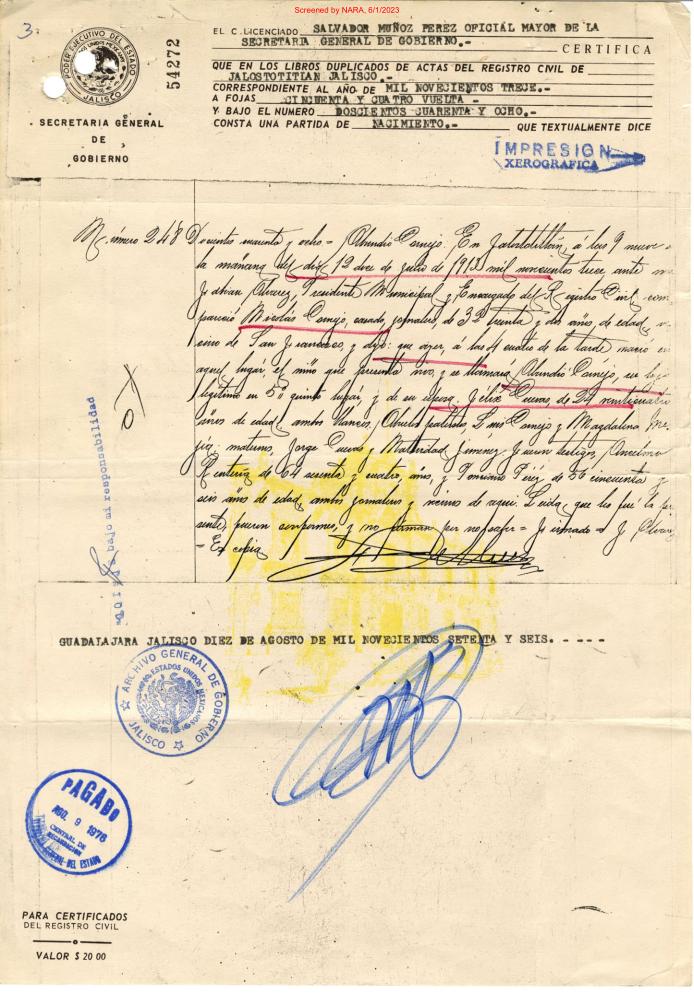 Screened by NARA, 6/1/2023
3
PODER EJECUTIVO DEL ESTADO
ESTADOS UNIDOS MEXICANOS
JALISCO
SECRETARIA GENERAL
DE
GOBIERNO
54272
EL C. LICENCIADO SALVADOR MUÑOZ PEREZ OFICIAL MAYOR DE LA
SECRETARIA GENERAL DE GOBIERNO.-
CERTIFICA
QUE EN LOS LIBROS DUPLICADOS DE ACTAS DEL REGISTRO CIVIL DE
JALOSTOTITLAN JALISCO.-
CORRESPONDIENTE AL AÑO DE MIL NOVECIENTOS TRECE.-
A FOJAS CINCUENTA Y CUATRO VUELTA -
Y BAJO EL NUMERO DOSCIENTOS CUARENTA Y OCHO.-
CONSTA UNA PARTIDA DE NACIMIENTO.- QUE TEXTUALMENTE DICE
IMPRESION
XEROGRAFICA
Número 248 Docientos cuarenta y ocho = Abundio Cornejo. En Jalostotitlán, á las 9 nueve
la mañana del día 12 doce de Julio de 1913 mil novecientos trece ante
Alvarez, Presidente Municipal y Encargado del Registro Civil com
pareció Nicolás Cornejo, casado, jornalero, de 32 treinta y dos años de edad,
cino de San Francisco, y dijo: que ayer, á las 4 cuatro de la tarde nació en
aquel lugar, el niño que presenta vivo, y se llamará Abundio Cornejo,
legítimo en 5º quinto lugar, y de su esposa Félix Cuevas de 24 veinticuatro
años de edad, ambos blancos. Abuelos paternos, Luis Cornejo y Magdalena
maternos, Jorge Cuevas y Natividad Jimenez. Fueron testigos, Anselmo
Rentería de 64 sesenta y cuatro, años, y Pérez de 56 cincuenta y
seis años de edad, ambos jornaleros y vecinos de aquí. Leída que les fué la pre
sente, fueron conformes, y no firman por no saber = Firmado = J. Alvarez
= Es copia
bajo mi responsabilidad
GUADALAJARA JALISCO DIEZ DE AGOSTO DE MIL NOVECIENTOS SETENTA Y SEIS. - - - -
ARCHIVO GENERAL DE GOBIERNO
ESTADOS UNIDOS MEXICANOS
JALISCO
PAGADO
AGO. 9 1976
CENTRAL DE
RECAUDACION
GENERAL DEL ESTADO
PARA CERTIFICADOS
DEL REGISTRO CIVIL
VALOR $ 20 00